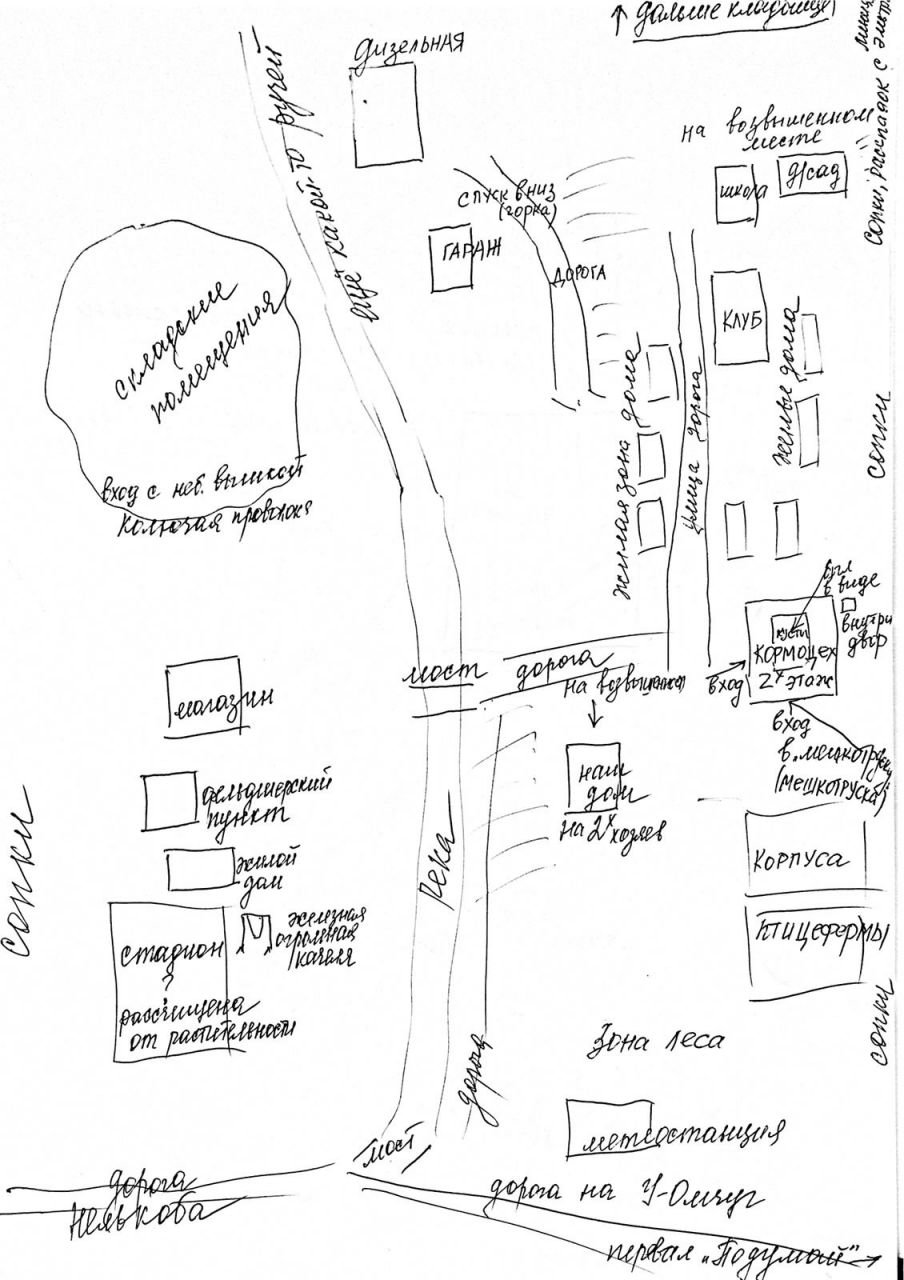 ↑ дальше кладбище
сопки, распадок с
дизельная
ещё какой-то ручей
на возвышенном
месте
школа
д/сад
спуск вниз
(горка)
ГАРАЖ
ДОРОГА
КЛУБ
складские
помещения
вход с неб. вышкой
колючая проволока
жилая зона дома
улица дорога
жилые дома
сопки
был
в виде
кусти
внутри
двор
КОРМОЦЕХ
2х этаж
вход
вход
в „мешкотруску"
(МЕШКОТРУСКА)
мост
дорога
на возвышенност
магазин
наш
дом
на 2х хозяев
фельдшерский
пункт
жилой
дом
сопки
Река
КОРПУСА
ПТИЦЕФЕРМЫ
стадион
?
расчищена
от растительности
железная
огромная
качеля
сопки
Зона леса
дорога
метеостанция
мост
дорога
Нелькоба
дорога на У-Омчуг
первая „Подумай" →